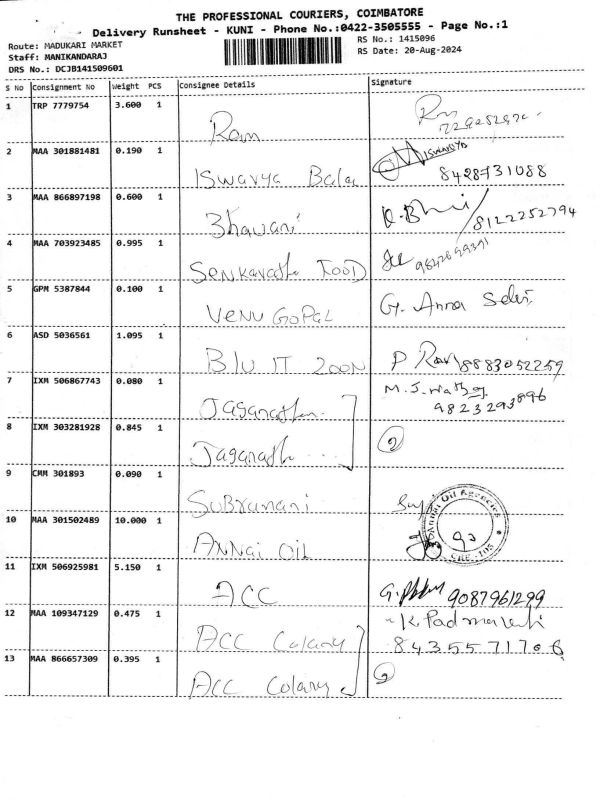 THE PROFESSIONAL COURIERS, COIMBATORE
Delivery Runsheet - KUNI - Phone No.:0422-3505555 - Page No.:1
Route: MADUKARI MARKET
Staff: MANIKANDARAJ
DRS No.: DCJB141509601
RS No.: 1415096
RS Date: 20-Aug-2024
S No Consignment No Weight PCS Consignee Details Signature
1 TRP 7779754 3.600 1
Ram
2 MAA 301881481 0.190 1 ISWARYA
Iswarya Bala 8428731088
3 MAA 866897198 0.600 1
Bhavani 8122252794
4 MAA 703923485 0.995 1
FOOD
5 GPM 5387844 0.100 1 G. Anna Selvi
Venu Gopal
6 ASD 5036561 1.095 1
Blu IT ZOON P Ravi 8883052259
7 IXM 506867743 0.080 1
9823293896
8 IXM 303281928 0.845 1 2
9 CMM 301893 0.090 1
Subramani
10 MAA 301502489 10.000 1 Annai Oil Agencies
Annai Oil CBE-105
11 IXM 506925981 5.150 1
ACC 9087961299
12 MAA 109347129 0.475 1 K. Padmavathi
ACC Colany 8435571706
13 MAA 866657309 0.395 1 2
ACC Colany